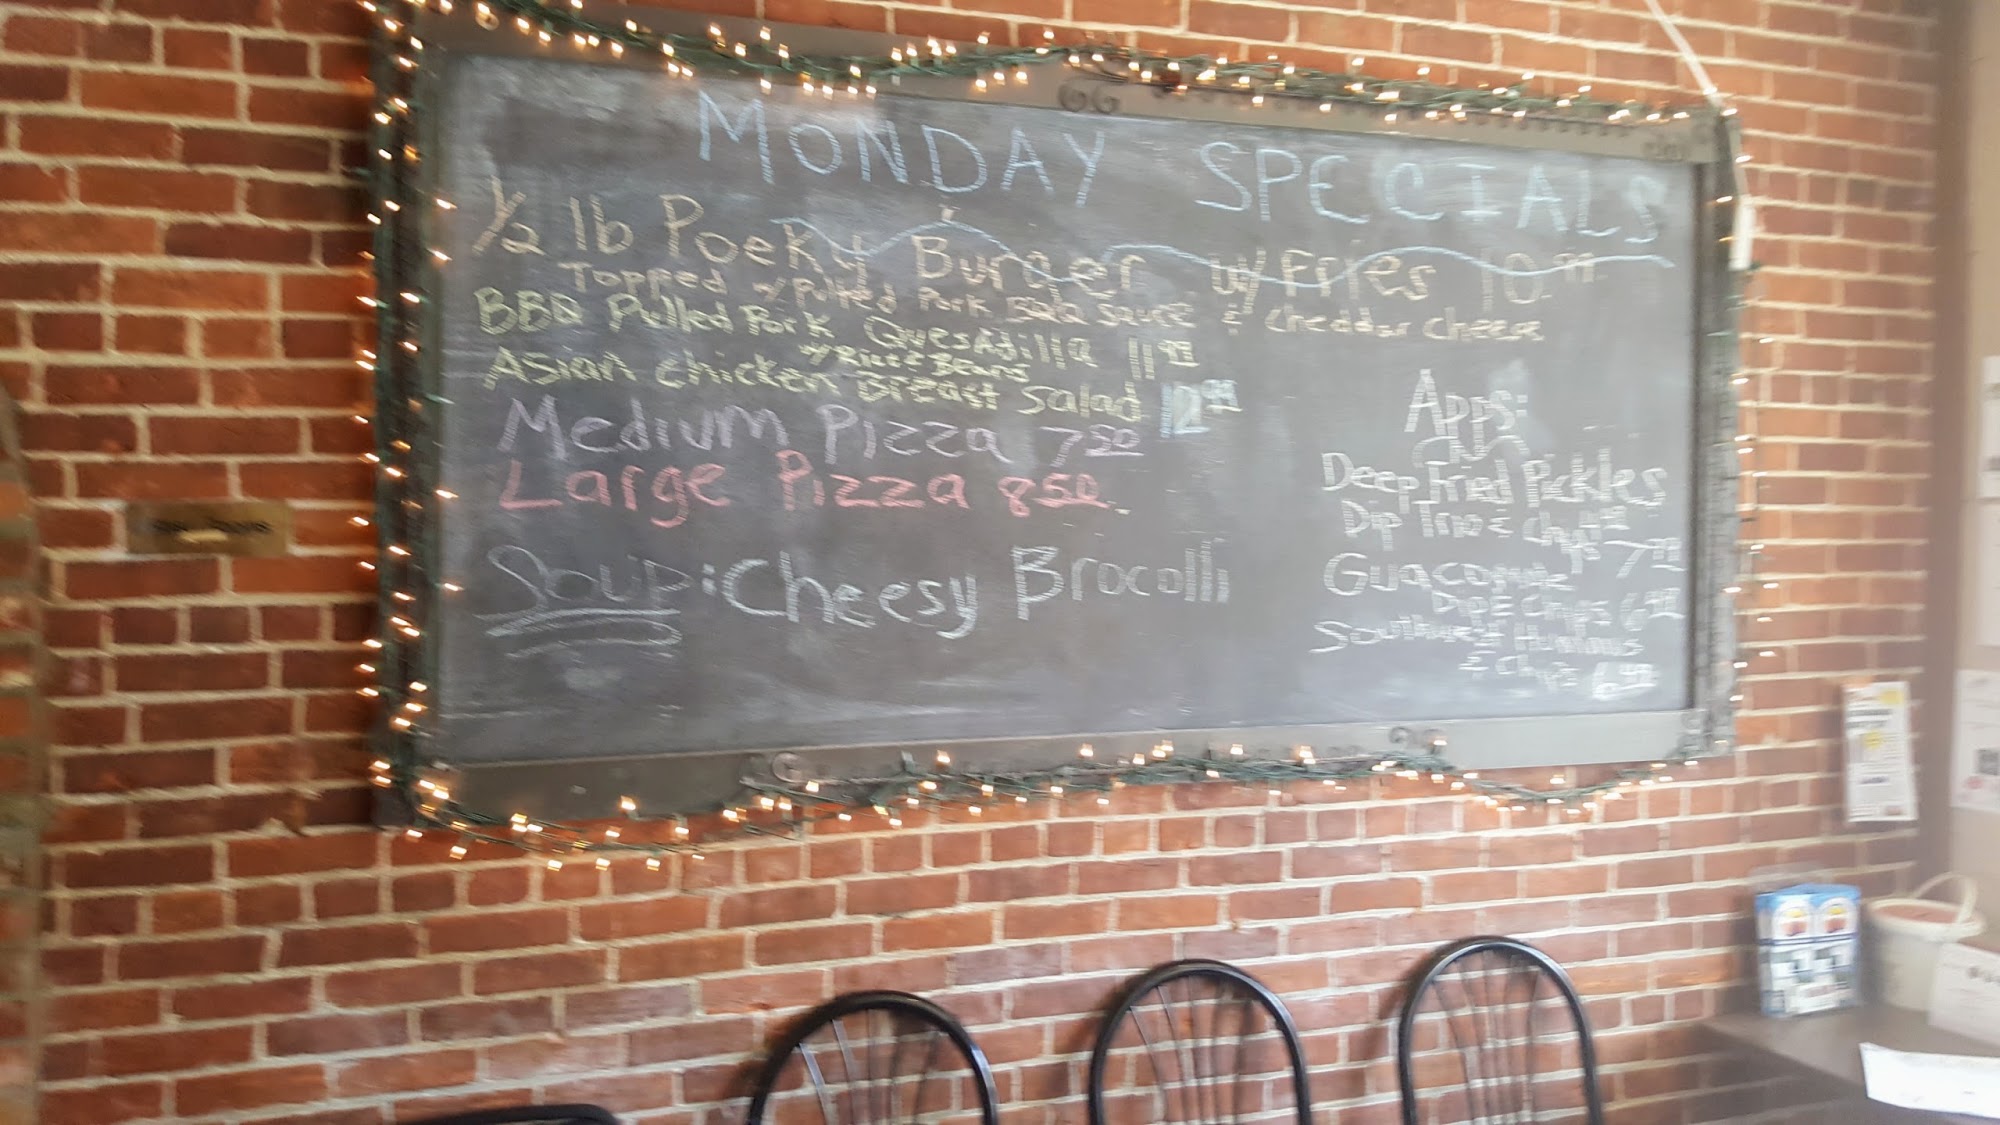 MONDAY SPECIALS
1/2 lb PoeKy Burger w/ Fries 10.99
Topped w/ Pulled Pork BBQ Sauce & Cheddar Cheese
BBQ Pulled Pork QuesAdilla 11.99
w/ Rice & Beans
Asian Chicken Breast Salad 12.99
Medium Pizza 7.50
Large Pizza 8.50
Soup: Cheesy Brocolli
Apps:
Deep Fried Pickles
Dip Trio & Chips 7.99
Guacamole
Dip & Chips 6.99
Southwest Hummus
& Chips 6.99